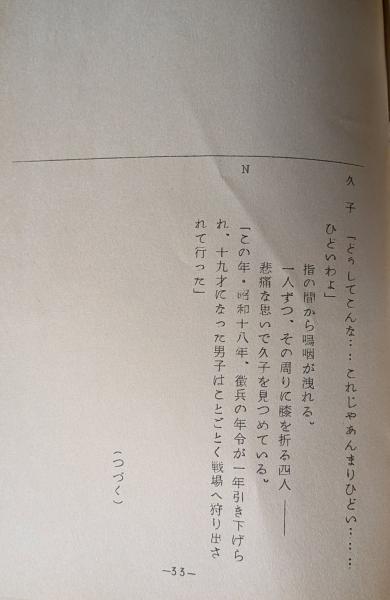 久　子　「どうしてこんな……これじゃあんまりひどい………
ひどいわよ」
指の間から嗚咽が洩れる。
一人ずつ、その周りに膝を折る四人――
悲痛な思いで久子を見つめている。
N　「この年・昭和十八年、徴兵の年令が一年引き下げら
れ、十九才になった男子はことごとく戦場へ狩り出さ
れて行った」
（つづく）
—33—